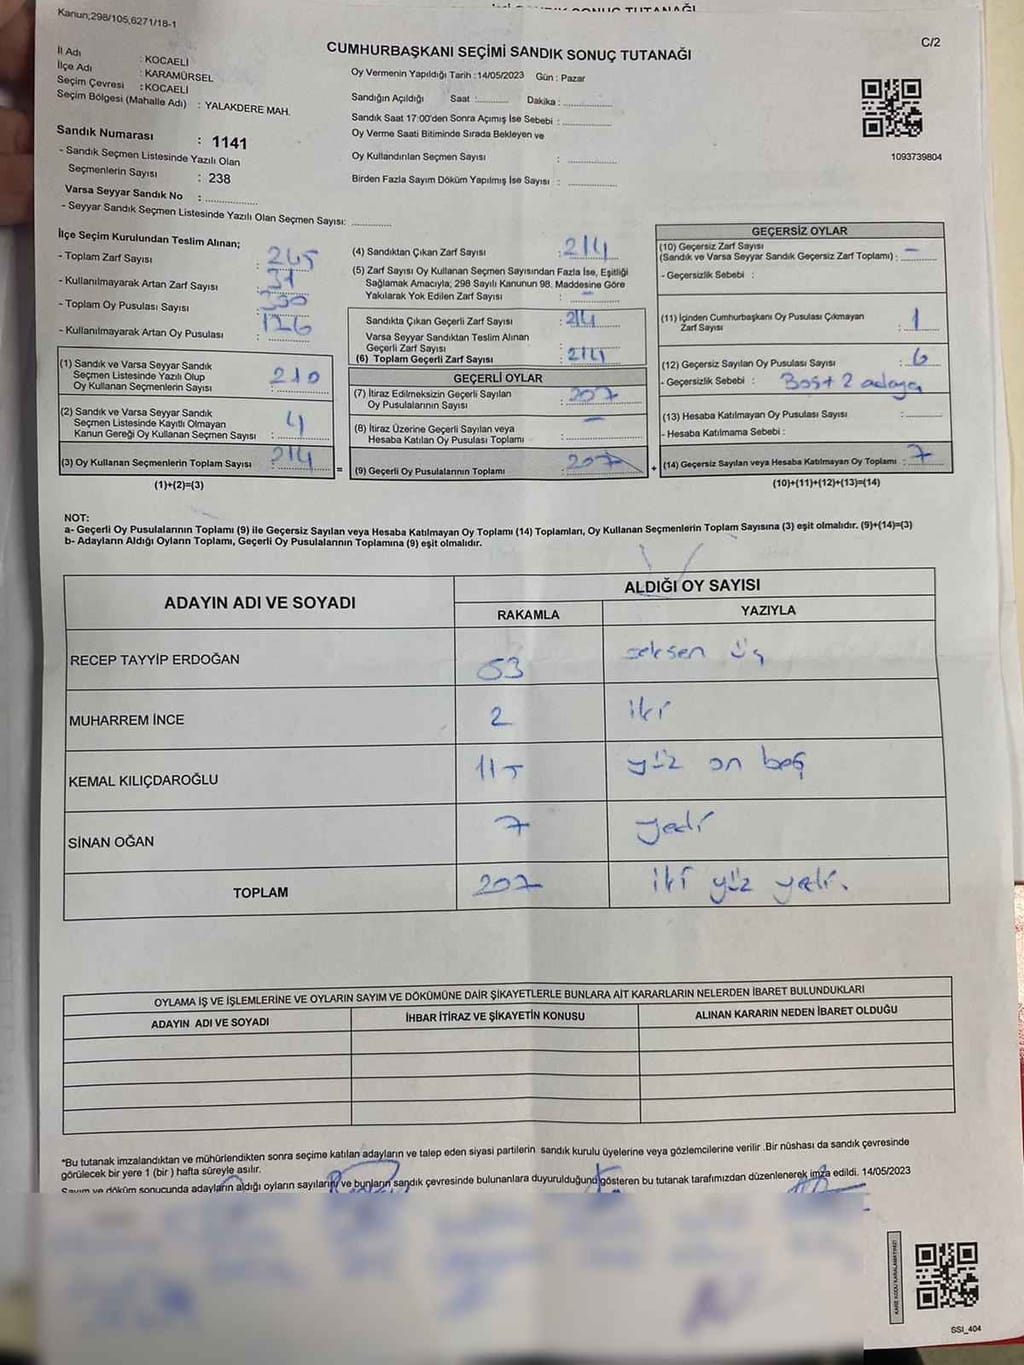 Kanun;298/105,6271/18-1
CUMHURBAŞKANI SEÇİMİ SANDIK SONUÇ TUTANAĞI
C/2
İl Adı : KOCAELİ
İlçe Adı : KARAMÜRSEL
Seçim Çevresi : KOCAELİ
Seçim Bölgesi (Mahalle Adı) : YALAKDERE MAH.
Sandık Numarası : 1141
- Sandık Seçmen Listesinde Yazılı Olan
Seçmenlerin Sayısı : 238
Varsa Seyyar Sandık No :
- Seyyar Sandık Seçmen Listesinde Yazılı Olan Seçmen Sayısı:
Oy Vermenin Yapıldığı Tarih : 14/05/2023 Gün : Pazar
Sandığın Açıldığı Saat : Dakika :
Sandık Saat 17:00'den Sonra Açımış İse Sebebi :
Oy Verme Saati Bitiminde Sırada Bekleyen ve
Oy Kullandırılan Seçmen Sayısı :
Birden Fazla Sayım Döküm Yapılmış İse Sayısı :
1093739804
İlçe Seçim Kurulundan Teslim Alınan;
- Toplam Zarf Sayısı : 245
- Kullanılmayarak Artan Zarf Sayısı : 31
- Toplam Oy Pusulası Sayısı : 330
- Kullanılmayarak Artan Oy Pusulası : 126
(1) Sandık ve Varsa Seyyar Sandık
Seçmen Listesinde Yazılı Olup
Oy Kullanan Seçmenlerin Sayısı : 210
(2) Sandık ve Varsa Seyyar Sandık
Seçmen Listesinde Kayıtlı Olmayan
Kanun Gereği Oy Kullanan Seçmen Sayısı : 4
(3) Oy Kullanan Seçmenlerin Toplam Sayısı : 214
(1)+(2)=(3)
(4) Sandıktan Çıkan Zarf Sayısı : 214
(5) Zarf Sayısı Oy Kullanan Seçmen Sayısından Fazla İse, Eşitliği
Sağlamak Amacıyla; 298 Sayılı Kanunun 98. Maddesine Göre
Yakılarak Yok Edilen Zarf Sayısı : –
Sandıkta Çıkan Geçerli Zarf Sayısı : 214
Varsa Seyyar Sandıktan Teslim Alınan
Geçerli Zarf Sayısı :
(6) Toplam Geçerli Zarf Sayısı : 214
GEÇERLİ OYLAR
(7) İtiraz Edilmeksizin Geçerli Sayılan
Oy Pusulalarının Sayısı : 207
(8) İtiraz Üzerine Geçerli Sayılan veya
Hesaba Katılan Oy Pusulası Toplamı : –
= (9) Geçerli Oy Pusulalarının Toplamı : 207 +
GEÇERSİZ OYLAR
(10) Geçersiz Zarf Sayısı
(Sandık ve Varsa Seyyar Sandık Geçersiz Zarf Toplamı) : –
- Geçersizlik Sebebi :
(11) İçinden Cumhurbaşkanı Oy Pusulası Çıkmayan
Zarf Sayısı : 1
(12) Geçersiz Sayılan Oy Pusulası Sayısı : 6
- Geçersizlik Sebebi : 3 Boş + 2 adaya
(13) Hesaba Katılmayan Oy Pusulası Sayısı :
- Hesaba Katılmama Sebebi :
(14) Geçersiz Sayılan veya Hesaba Katılmayan Oy Toplamı : 7
(10)+(11)+(12)+(13)=(14)
NOT:
a- Geçerli Oy Pusulalarının Toplamı (9) ile Geçersiz Sayılan veya Hesaba Katılmayan Oy Toplamı (14) Toplamları, Oy Kullanan Seçmenlerin Toplam Sayısına (3) eşit olmalıdır. (9)+(14)=(3)
b- Adayların Aldığı Oyların Toplamı, Geçerli Oy Pusulalarının Toplamına (9) eşit olmalıdır.
ADAYIN ADI VE SOYADI
ALDIĞI OY SAYISI
RAKAMLA YAZIYLA
RECEP TAYYİP ERDOĞAN 83 seksen üç
MUHARREM İNCE 2 iki
KEMAL KILIÇDAROĞLU 115 yüz on beş
SİNAN OĞAN 7 yedi
TOPLAM 207 iki yüz yedi.
OYLAMA İŞ VE İŞLEMLERİNE VE OYLARIN SAYIM VE DÖKÜMÜNE DAİR ŞİKAYETLERLE BUNLARA AİT KARARLARIN NELERDEN İBARET BULUNDUKLARI
ADAYIN ADI VE SOYADI İHBAR İTİRAZ VE ŞİKAYETİN KONUSU ALINAN KARARIN NEDEN İBARET OLDUĞU
*Bu tutanak imzalandıktan ve mühürlendikten sonra seçime katılan adayların ve talep eden siyasi partilerin sandık kurulu üyelerine veya gözlemcilerine verilir .Bir nüshası da sandık çevresinde
görülecek bir yere 1 (bir ) hafta süreyle asılır.
Sayım ve döküm sonucunda adayların aldığı oyların sayıların ve bunların sandık çevresinde bulunanlara duyurulduğunu gösteren bu tutanak tarafımızdan düzenlenerek imza edildi. 14/05/2023
KARE KODU KARALAMAYINIZ!
SSI_404